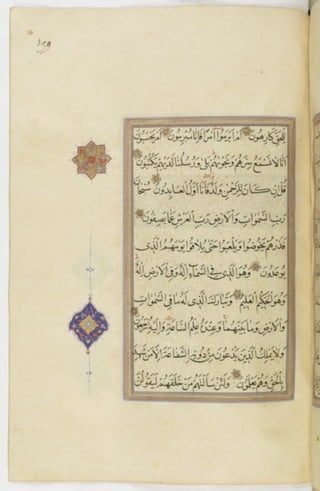 للحق كارهون ام ابرموا امرا فانا مبرمون ام يحسبون
انا لا نسمع سرهم ونجويهم بلى ورسلنا لديهم يكتبون
قل ان كان للرحمن ولد فانا اول العابدين سبحان
رب السموات والارض رب العرش عما يصفون
فذرهم يخوضوا ويلعبوا حتى يلاقوا يومهم الذى
يوعدون وهو الذى فى السماء اله وفى الارض اله
وهو الحكيم العليم وتبارك الذى له ملك السموات
والارض وما بينهما وعنده علم الساعة واليه ترجعون
ولا يملك الذين يدعون من دونه الشفاعة الا من شهد
بالحق وهم يعلمون ولئن سالتهم من خلقهم ليقولن